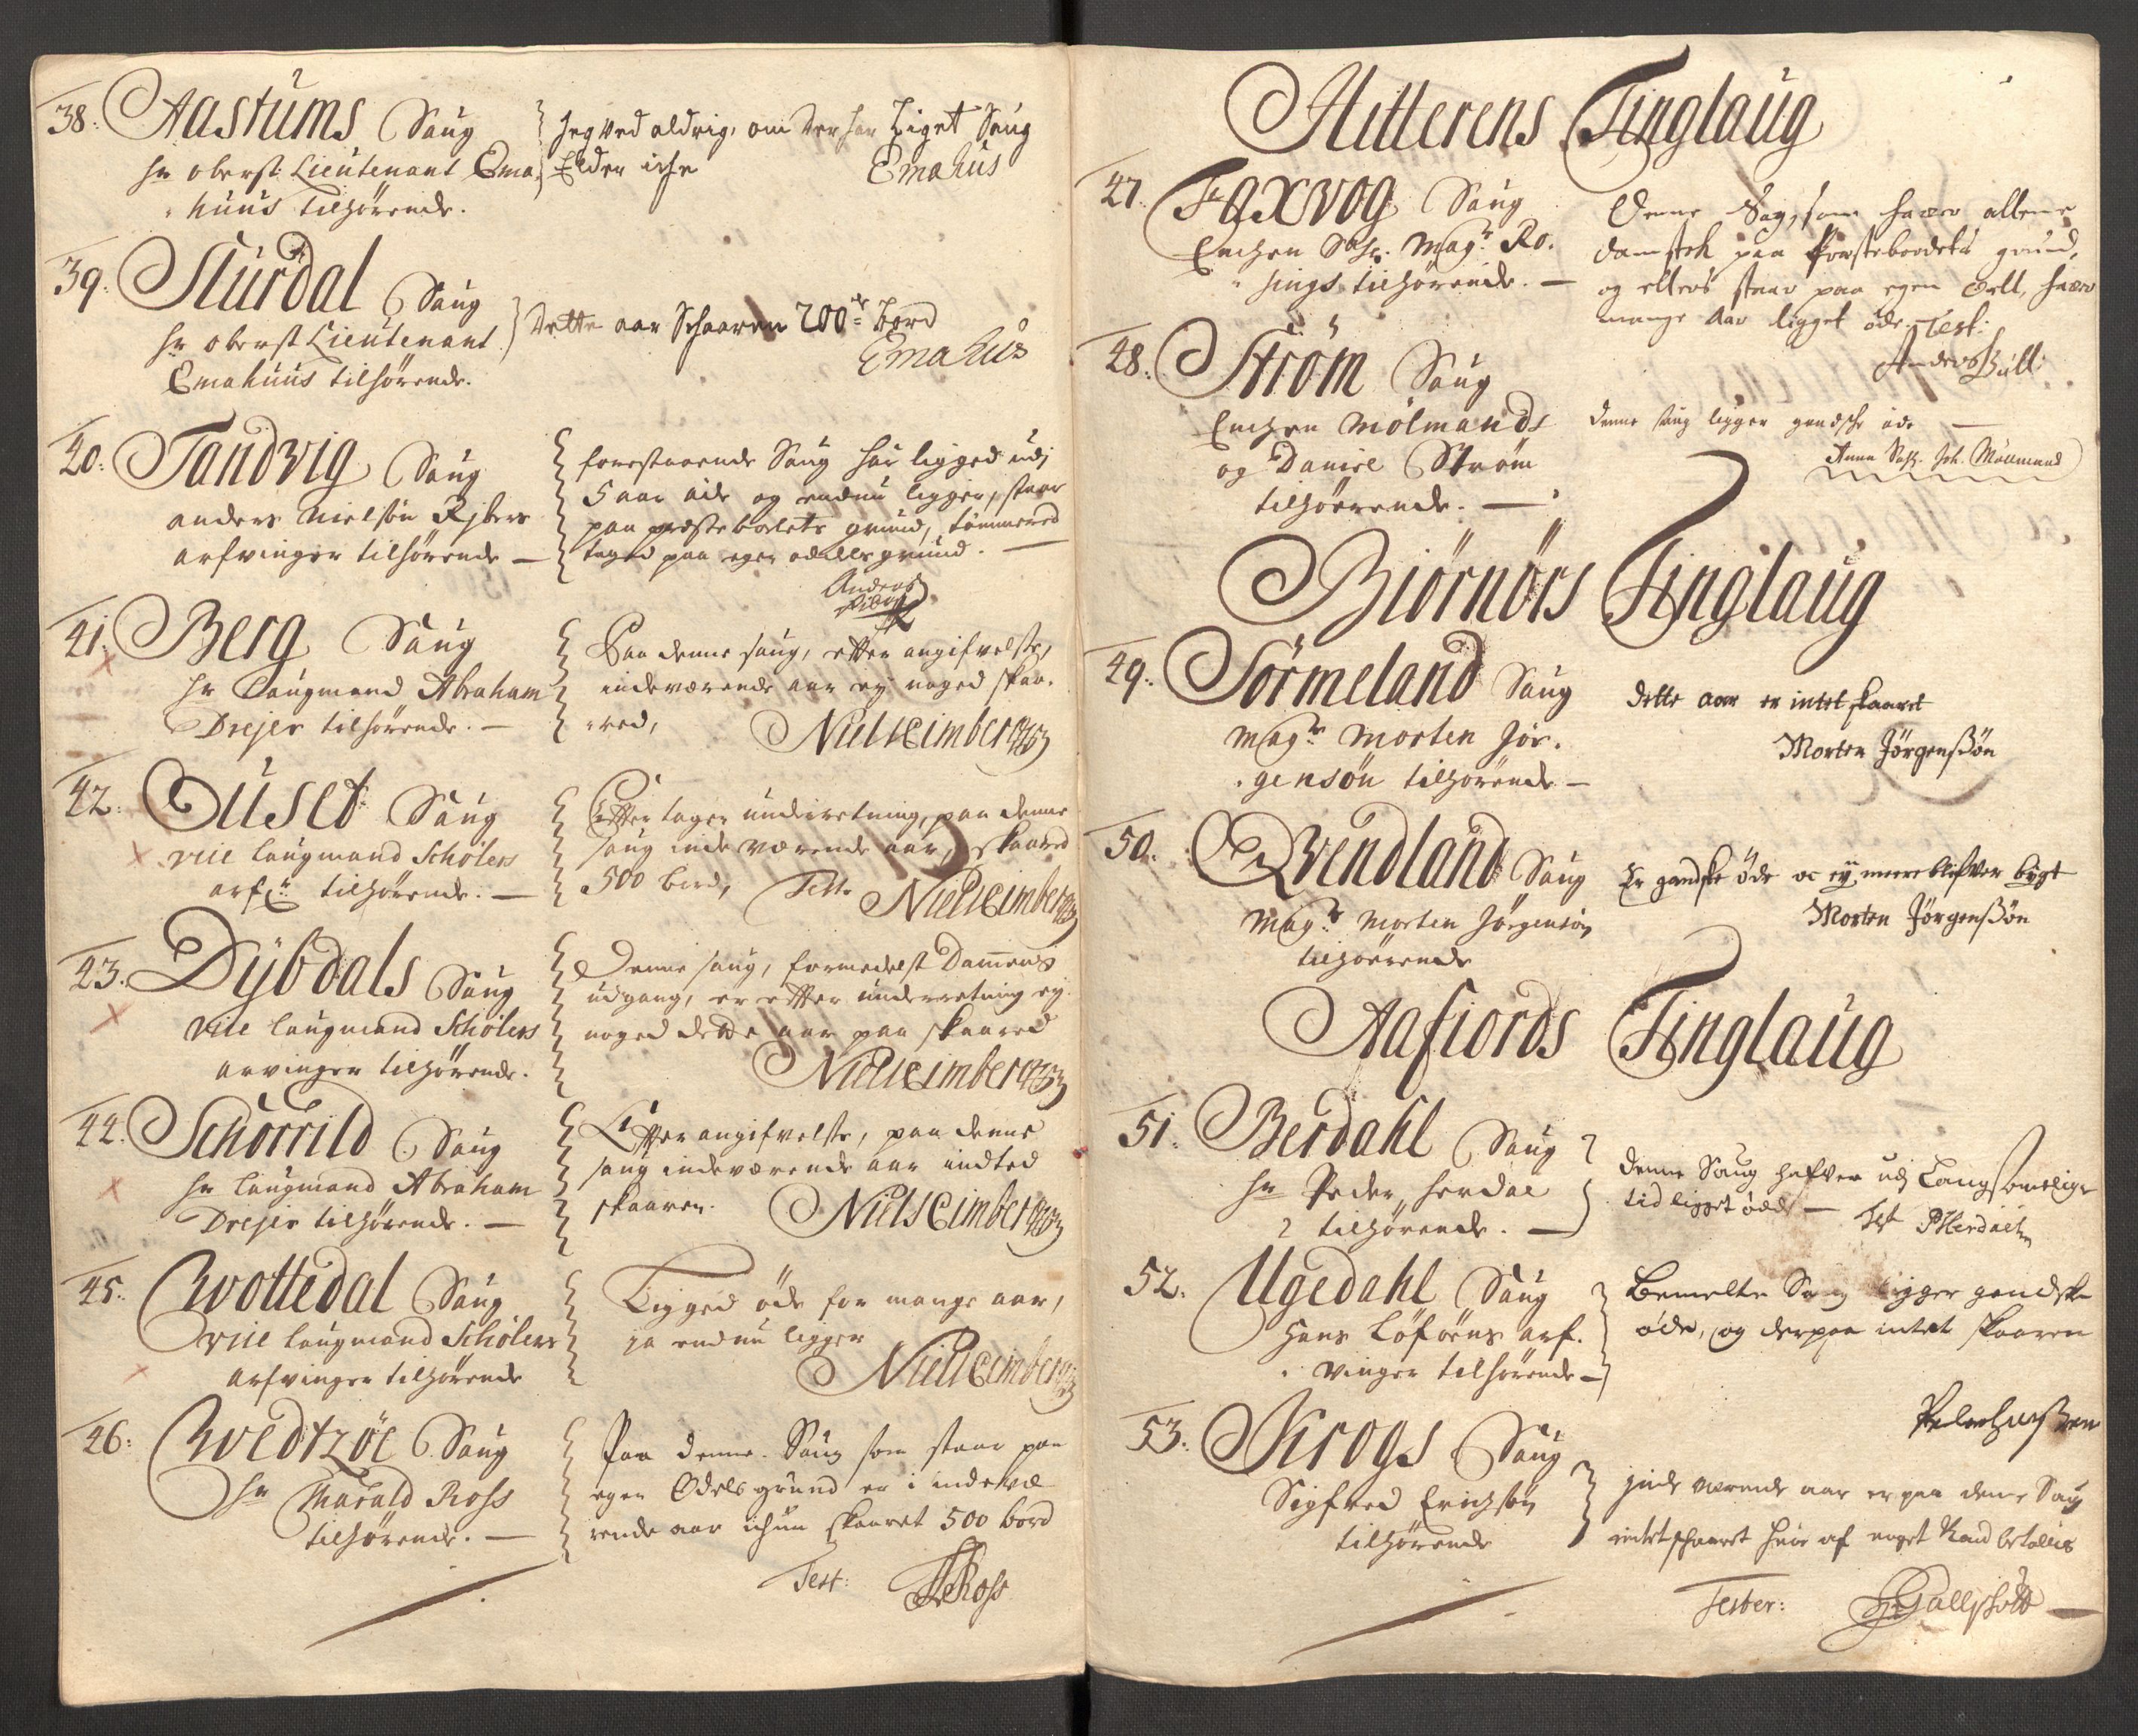 38. Aastums Saug
hr oberst Lieutenant Ema,
huus tilhörende.
Jeg ved aldrig, om der har Liget Saug
Elder icke
Emahus
39. Sturdal Saug
hr oberst Lieutenant
Emahuus tilhörende.
Dette aar Schaaren 200de bord
Emahus
40. Tandvig Saug
anders Nielsön Rÿbers
arfvinger tilhörende —
forestaaende Saug har ligged udj
5 aar öde og endnu ligger, staar
paa præstebolets grund, tömmered
taged paa egen odells grund. —
Anders
41. Berg Saug
hr Laugmand Abraham
Drejer tilhörende. —
Paa denne saug, efter angifvelse,
indeværende aar ej noged skaa-
red,
Niels Eimbersen
42. Uuset Saug
viie laugmand Schölers
arf: tilhörende. —
Efter tagen underretning, paa denne
saug inde værende aar, skaared
500 bord, Test
Niels Eimbersen
43. Dÿbdals Saug
viie laugmand Schölers
arvinger tilhörende.
Denne saug, formedelst Dammens
udgang, er efter underretning ej
noged dette aar paa skaared
Niels Eimbersen
44. Schörrild Saug
hr laugmand Abraham
Drejer tilhörende. —
Efter angifvelse, paa denne
saug indeværende aar indted
skaaren.
Niels Eimbersen
45. Qvottedal Saug
viie laugmand Schölers
arfvinger tilhörende
Ligged öde for mange aar,
ja endnu ligger
Niels Eimbersen
46: Qvedtzöe Saug
hr Harald Ross
tilhörende. —
Paa denne Saug som staar paa
egen Odels grund er i indevæ
rende aar ickun skaaret 500 bord
Test: HRoss
Hitterens Tinglaug
47. Faxvog Saug
Enchen Sl: Hr: Magr Ro.
sings tilhörende. —
Denne Sag, som haver allene
damstok paa Præsteboedets grund,
og ellers staar paa egen , haver
mange Aar ligget öde. Test:
Anders Bull:
48: Ström Saug
Enchen Mölmands
og Daniel Ström
tilhörende. —
denne saug ligger gandsche öde —
Anna Sal: Joh. Möllmand
Biörnörs Tinglaug
49: Sörmeland Saug
Magr Morten Jör.
gensön tilhörende —
dette aar er intet skaaret
Morten Jörgenssön
50. Qvendland Saug
Magr Morten Jörgensön
tilhörende
Er gandske öde oc ej meere blifver bÿgt
Morten Jörgenssön
Aafiords Tinglaug
51. Berdahl Saug
hr Peder Herdal
tilhörende. —
denne Saug hafver udj Langsommelige
tid ligget öde — Test PHerdaehl
52. Ugedahl Saug
Hans Löföens arf.
vinger tilhörende —
Bemelte Saug ligger gandske
öde, og derpaa intet skaaren
53. Krogs Saug
Sigfred Erichsön
tilhörende
Inde værende aar er paa denne Saug
intet schaaret hvor af noget Kand betalis
Tester: